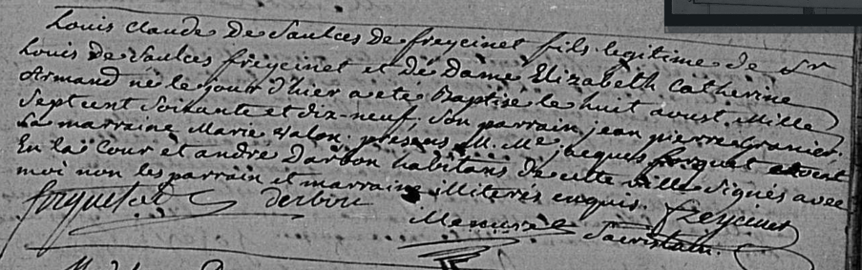 Louis Claude De Saulces De freycinet fils legitime de Sr
Louis de Saulces freycinet et de Dame Elizabeth Catherine
Armand né le jour d'hier a eté Baptisé le huit aoust Mille
Sept cent Soixante et dix-neuf, Son parrain jean pierre Granier
La marraine Marie Valon. presens M. Me jacques forquet avocat
En la Cour et andré Darbon habitans de cette ville Signés avec
moi non les parrain et marraine illiterés enquis. freycinet
forquet at derbon
Sacristain.